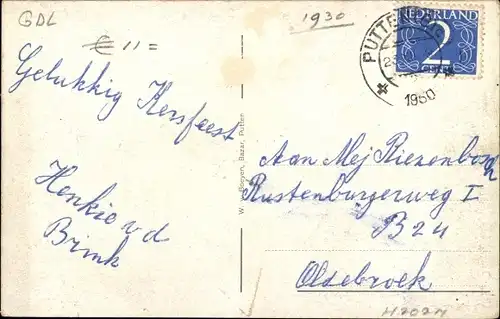 GDL
€ 11=
1930
Gelukkig Kersfeest
Henkie v d
Brink
W. v. Boeyen, Bazar, Putten
PUTTEN
1950
NEDERLAND
2
cent
Aan Mej Riezenbosch
Rustenburgerweg I
B 24
Oldebroek
H2024